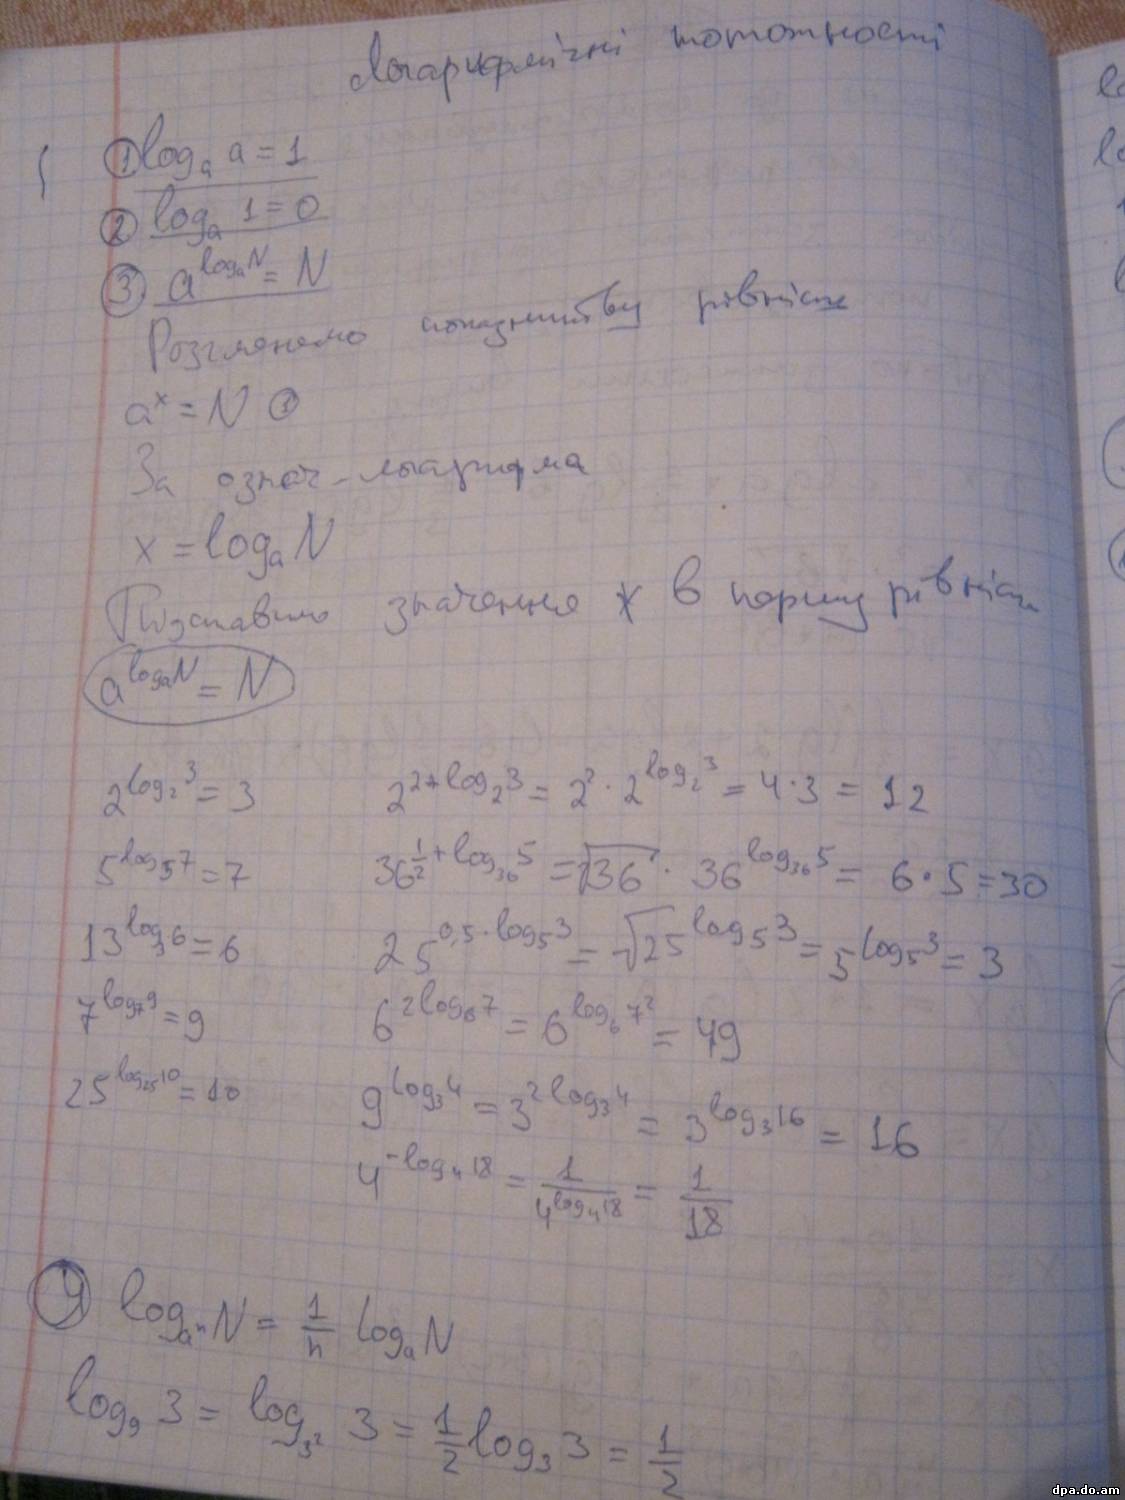 Логарифмічні тотожності
① logₐ a = 1
② logₐ 1 = 0
③ a^(logₐN) = N
Розглянемо показникову рівність
aˣ = N ①
За означ. логарифма
x = logₐ N
Підставимо значення x в першу рівність
a^(logₐN) = N
2^(log₂3) = 3
2^(2+log₂3) = 2² · 2^(log₂3) = 4·3 = 12
5^(log₅7) = 7
36^(1/2+log₃₆5) = √36 · 36^(log₃₆5) = 6·5 = 30
13^(log₁₃6) = 6
25^(0,5·log₅3) = √25^(log₅3) = 5^(log₅3) = 3
7^(log₇9) = 9
6^(2log₆7) = 6^(log₆7²) = 49
25^(log₂₅10) = 10
9^(log₃4) = 3^(2log₃4) = 3^(log₃16) = 16
4^(-log₄18) = 1/4^(log₄18) = 1/18
④ log_(aⁿ) N = 1/n logₐ N
log₉ 3 = log_(3²) 3 = 1/2 log₃ 3 = 1/2
dpa.do.am